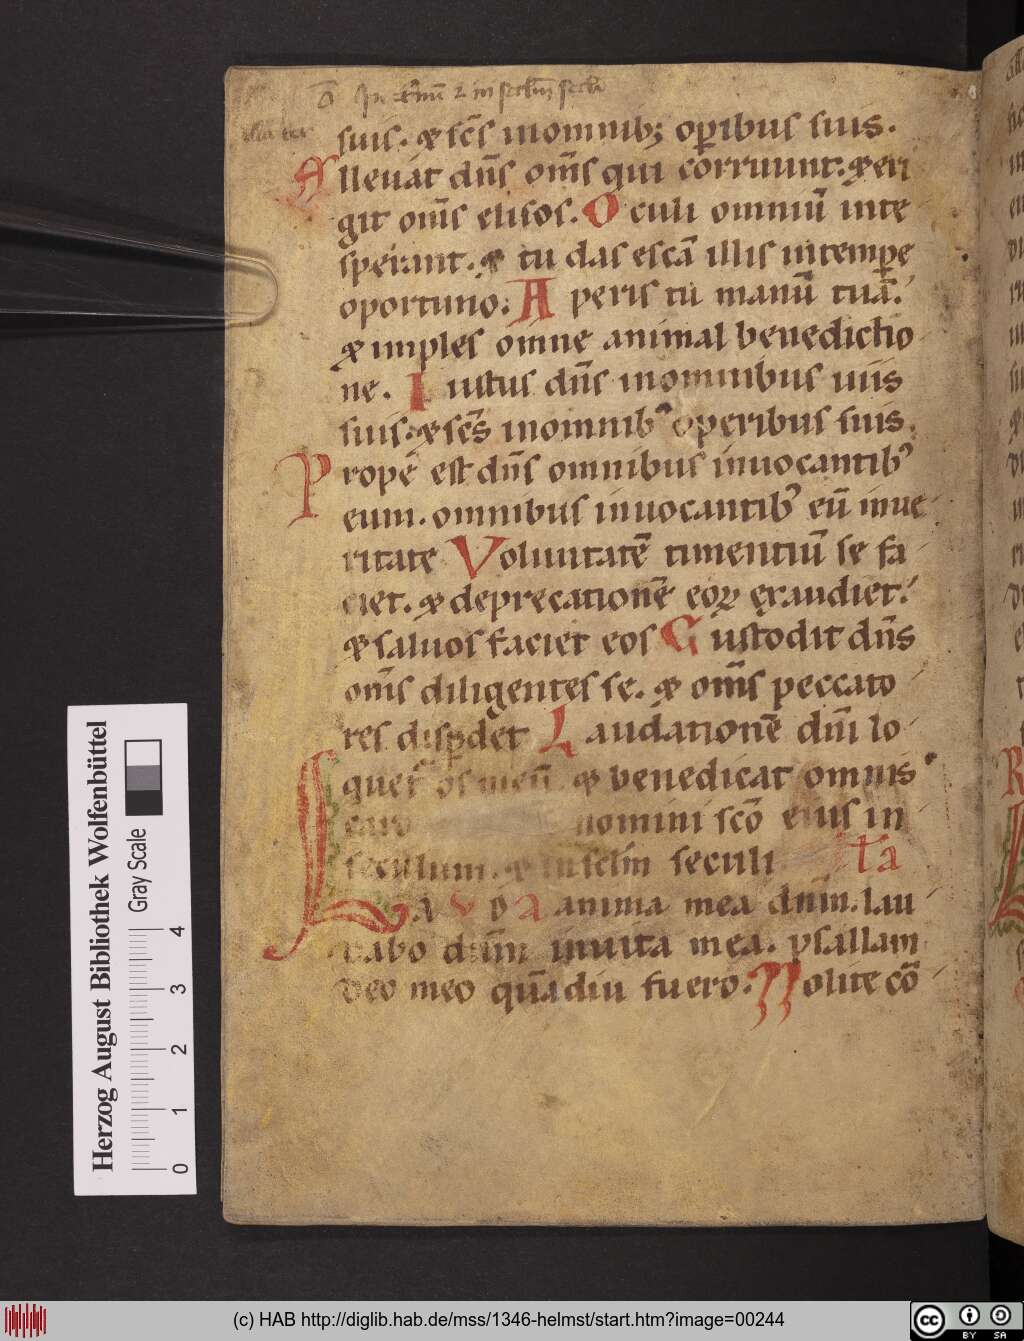 suis. & sc̄s inomnib; oꝑibus suis.
Alleuat dn̄s om̄s qui corruunt. & eri
git om̄s elisos. Oculi omniū inte
sperant. & tu das escā illis intempe
oportuno. Aperis tu manū tuā.
& imples omne animal benedictio
ne. Iustus dn̄s inomnibus uiis
suis. & sc̄s inomnib' operibus suis.
Prope est dn̄s omnibus inuocantib'
eum. omnibus inuocantib' eū inue
ritate Voluntatē timentiū se fa
ciet. & deprecationē eoꝝ exaudiet.
& saluos faciet eos Custodit dn̄s
om̄s diligentes se. & om̄s peccato
res disꝑdet Laudationē dn̄i lo
quet' os meū & benedicat omnis
caro nomini scō eius in
seculum. & in sclm seculi
Lauda anima mea dnm. lau
dabo dnm inuita mea. psallam
deo meo quādiu fuero. Nolite cō
Herzog August Bibliothek Wolfenbüttel
Gray Scale
0 1 2 3 4
(c) HAB http://diglib.hab.de/mss/1346-helmst/start.htm?image=00244
cc BY SA